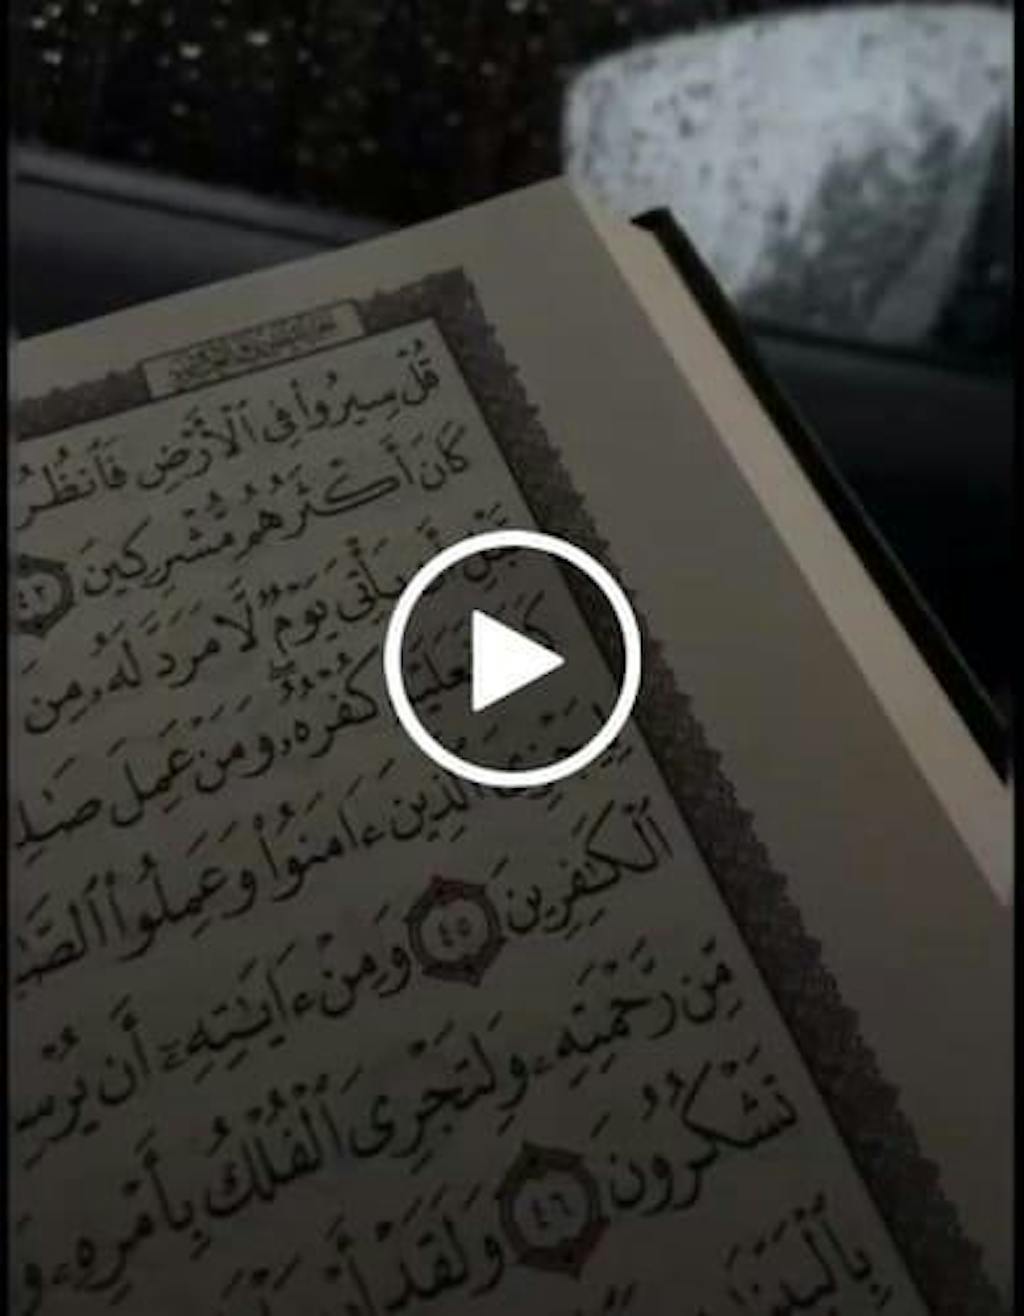 قُلْ سِيرُوا۟ فِى ٱلْأَرْضِ فَٱنظُرُ
كَانَ أَكْثَرُهُم مُّشْرِكِينَ ٤٢
يَأْتِىَ يَوْمٌ لَّا مَرَدَّ لَهُۥ مِنَ
كُفْرُهُۥ وَمَنْ عَمِلَ
ٱلَّذِينَ ءَامَنُوا۟ وَعَمِلُوا۟
ٱلْكَـٰفِرِينَ ٤٥ وَمِنْ ءَايَـٰتِهِۦٓ أَن
مِّن رَّحْمَتِهِۦ وَلِتَجْرِىَ ٱلْفُلْكُ بِأَمْرِهِۦ
تَشْكُرُونَ ٤٦ وَلَقَدْ